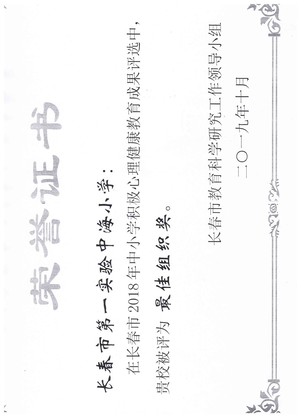 荣誉证书
长春市第一实验中海小学：
在长春市2018年中小学积极心理健康教育成果评选中，
贵校被评为 最佳组织奖。
长春市教育科学研究工作领导小组
二〇一九年十月